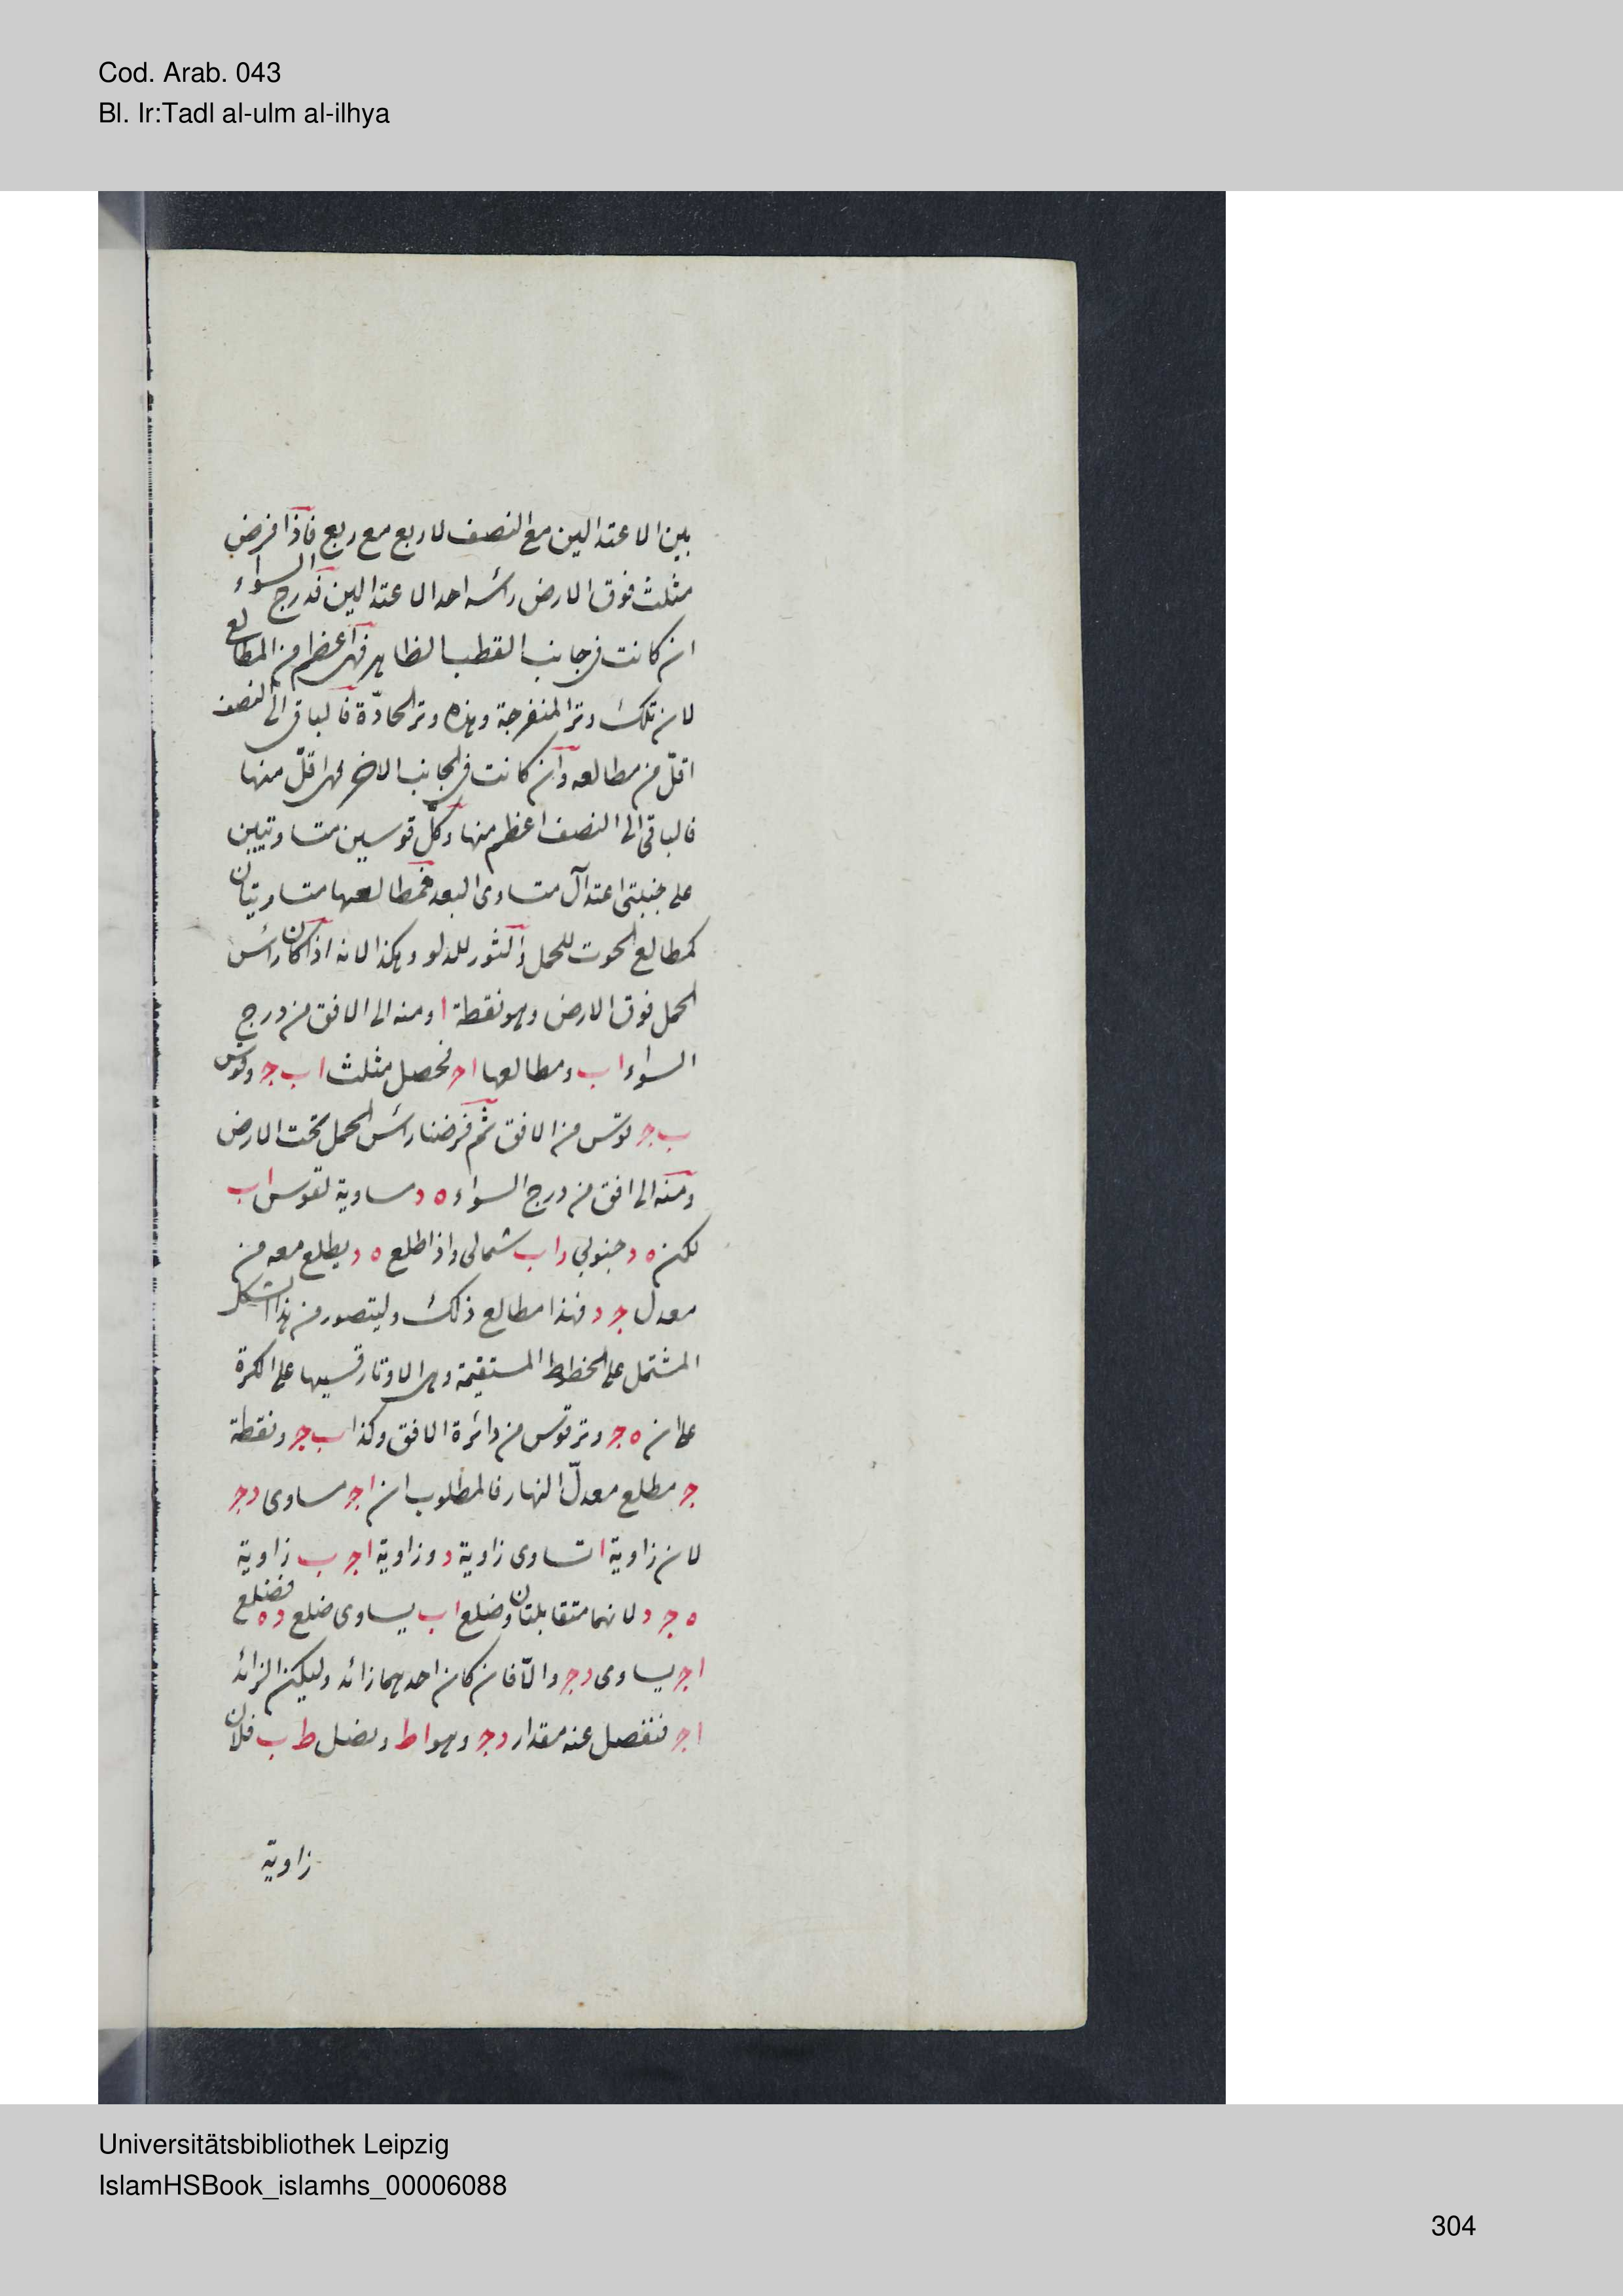 Cod. Arab. 043
Bl. Ir:Tadl al-ulm al-ilhya
بين الاعتدالين مع النصف لا ربع مع ربع فاذا فرض
مثلث فوق الارض رأسه احد الاعتدالين فدرج السواء
ان كانت فى جانب القطب الظاهر فهى اعظم من المطالع
لان تلك وتر المنفرجة وهذه وتر الحادّة فالباقى الى النصف
اقلّ من مطالعه وان كانت فى الجانب الاخر فهى اقلّ منها
فالباقى الى النصف اعظم منها وكلّ قوسين متساويتين
على جنبتى اعتدال متساوى البعد فمطالعهما متساويتان
كمطالع الحوت للحمل والثور للدلو وهكذا لانه اذا كان رأس
الحمل فوق الارض وهو نقطة ا ومنه الى الافق من درج
السواء اب ومطالعها اج فحصل مثلث اب ج وقوس
ب ج قوس من الافق ثم فرضنا رأس الحمل تحت الارض
ومنه الى افق من درج السواء ه د مساوية لقوس اب
لكن ه د جنوبى واب شمالى واذا طلع ه د يطلع معه من
معدل ج د فهذا مطالع ذلك وليتصور من هذا الشكل
المشتمل على الخطوط المستقيمة وهى الاوتار قسيها على الكرة
على ان ه ج وتر قوس من دائرة الافق وكذا ب ج ونقطة
ج مطلع معدلّ النهار فالمطلوب ان اج مساوى دج
لان زاوية ا تساوى زاوية د وزاوية اج ب زاوية
ه ج د لانهما متقابلتان وضلع اب يساوى ضلع ده فضلع
اج يساوى دج والّا فان كان احدهما زائد وليكن الزائد
اج فنفصل عنه مقدار دج وهو اط ونصل ط ب فلان
زاوية
Universitätsbibliothek Leipzig
IslamHSBook_islamhs_00006088
304